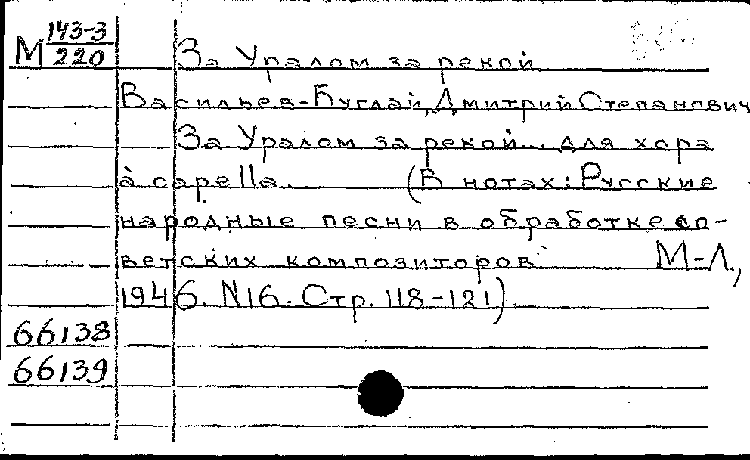 М 143-3/220
За Уралом за рекой
Васильев-Буглай, Дмитрий Степанович
За Уралом за рекой... для хора
à capella. (В нотах: Русские
народные песни в обработке со-
ветских композиторов. М-Л,
1946. N16. Стр. 118-121)
66138
66139